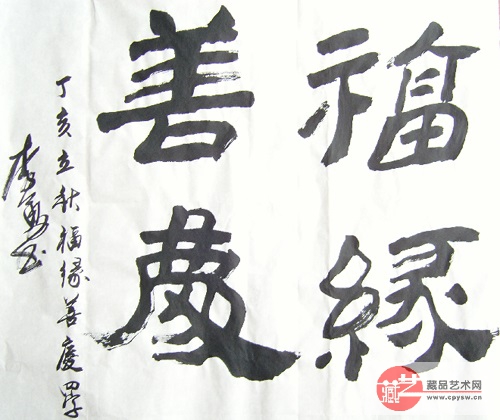 福缘
善慶
丁亥立秋福缘善慶
藏艺
藏品艺术网
www.cpysw.cn